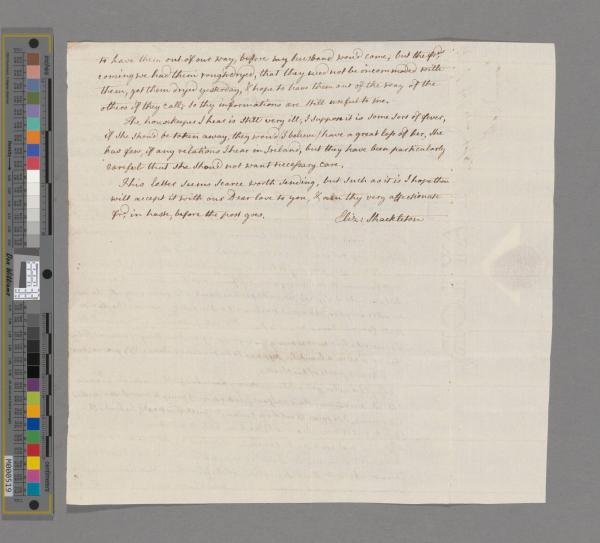 to have them out of our way, before my husband would come, but the frds.
coming we had them rough dryed, that they need not be incommoded with
them, got them dryed yesterday, & hope to have them out of the way of the
others if they call; so thy informations are still useful to me.
The housekeeper I hear is still very ill, I suppose it is some sort of fever,
if she should be taken away, they would I believe have a great loss of her, she
has few, if any relations I hear in Ireland, but they have been particularly
careful that she should not want necessary care.
This letter seems scarce worth sending, but such as it is I hope thou
will accept it with our Dear love to you, & am thy very affectionate
frd. in haste, before the post goes.
Eliz: Shackleton
inches
Don Williams
centimeters
M000519